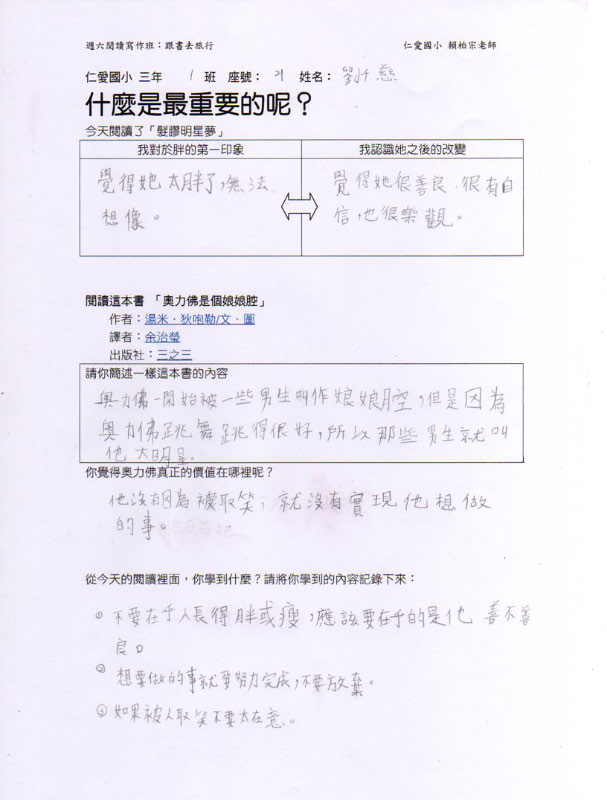 週六閱讀寫作班：跟書去旅行 仁愛國小 賴柏宗老師
仁愛國小 三年 1 班 座號： 21 姓名： 劉千慈
什麼是最重要的呢？
今天閱讀了「髮膠明星夢」
我對於胖的第一印象 我認識她之後的改變
覺得她太胖了，無法
想像。
覺得她很善良、很有自
信，也很樂觀。
閱讀這本書 「奧力佛是個娘娘腔」
作者：湯米．狄咆勒/文．圖
譯者：余治瑩
出版社：三之三
請你簡述一樣這本書的內容
奧力佛一開始被一些男生叫作娘娘腔，但是因為
奧力佛跳舞跳得很好，所以那些男生就叫
他大明星。
你覺得奧力佛真正的價值在哪裡呢？
他沒有因為被取笑，就沒有實現他想做
的事。
從今天的閱讀裡面，你學到什麼？請將你學到的內容記錄下來：
① 不要在乎人長得胖或瘦，應該要在乎的是他 善不善
良。
② 想要做的事就要努力完成，不要放棄。
③ 如果被人取笑不要太在意。